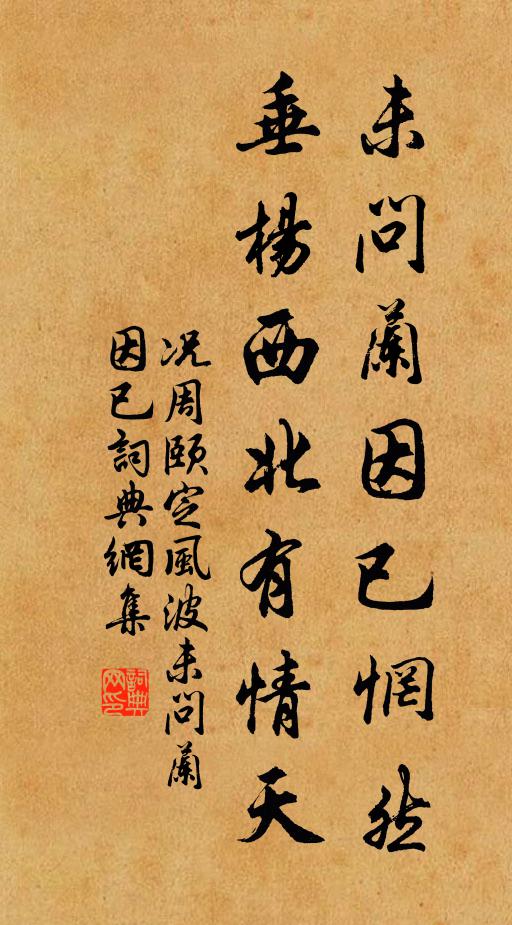 未問蘭因已惘然
垂楊西北有情天
况周頤定風波未問蘭
因已詞典網集
詞典
网印